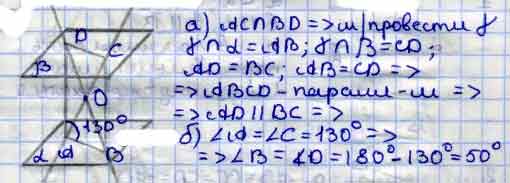 D
C
B
O
130°
α A B
а) AC∩BD => м/провести γ
γ∩α = AB; γ∩β = CD;
AD = BC; AB = CD =>
=> ABCD - паралл-м =>
=> AD || BC =>
б) ∠A = ∠C = 130° =>
=> ∠B = ∠D = 180° - 130° = 50°